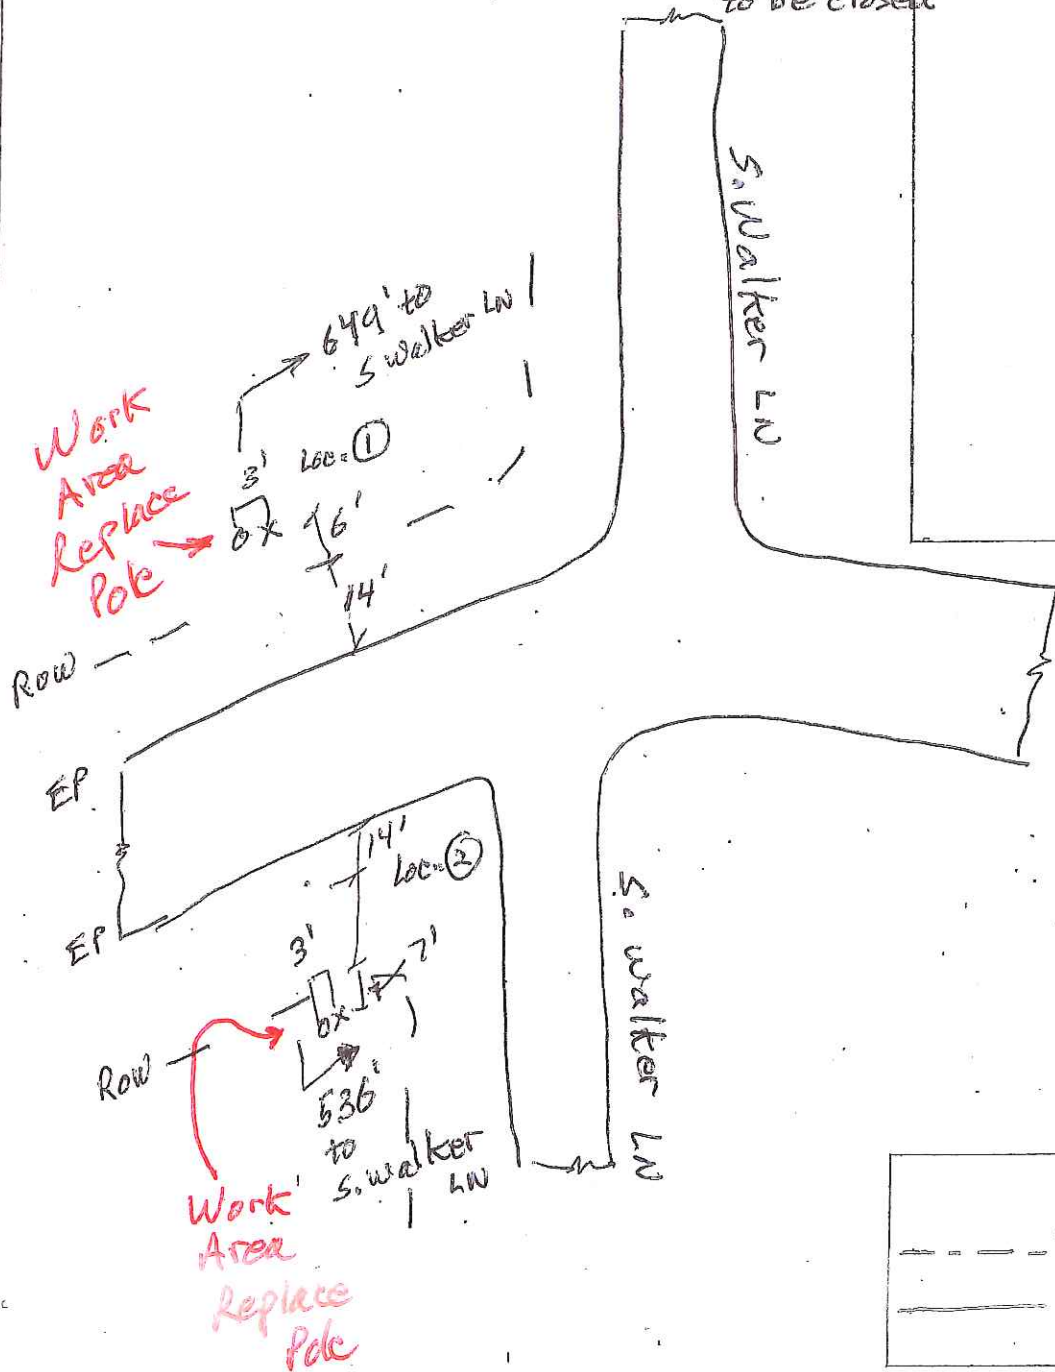 to be closed
S. Walker LN
649' to
S Walker LN
Work
Area
Replace
Pole
3' Loc. ①
OX
6'
14'
ROW
EP
EP
14'
Loc. ②
3'
7'
OX
ROW
536'
to
S. Walker
LN
S. Walker LN
Work
Area
Replace
Pole